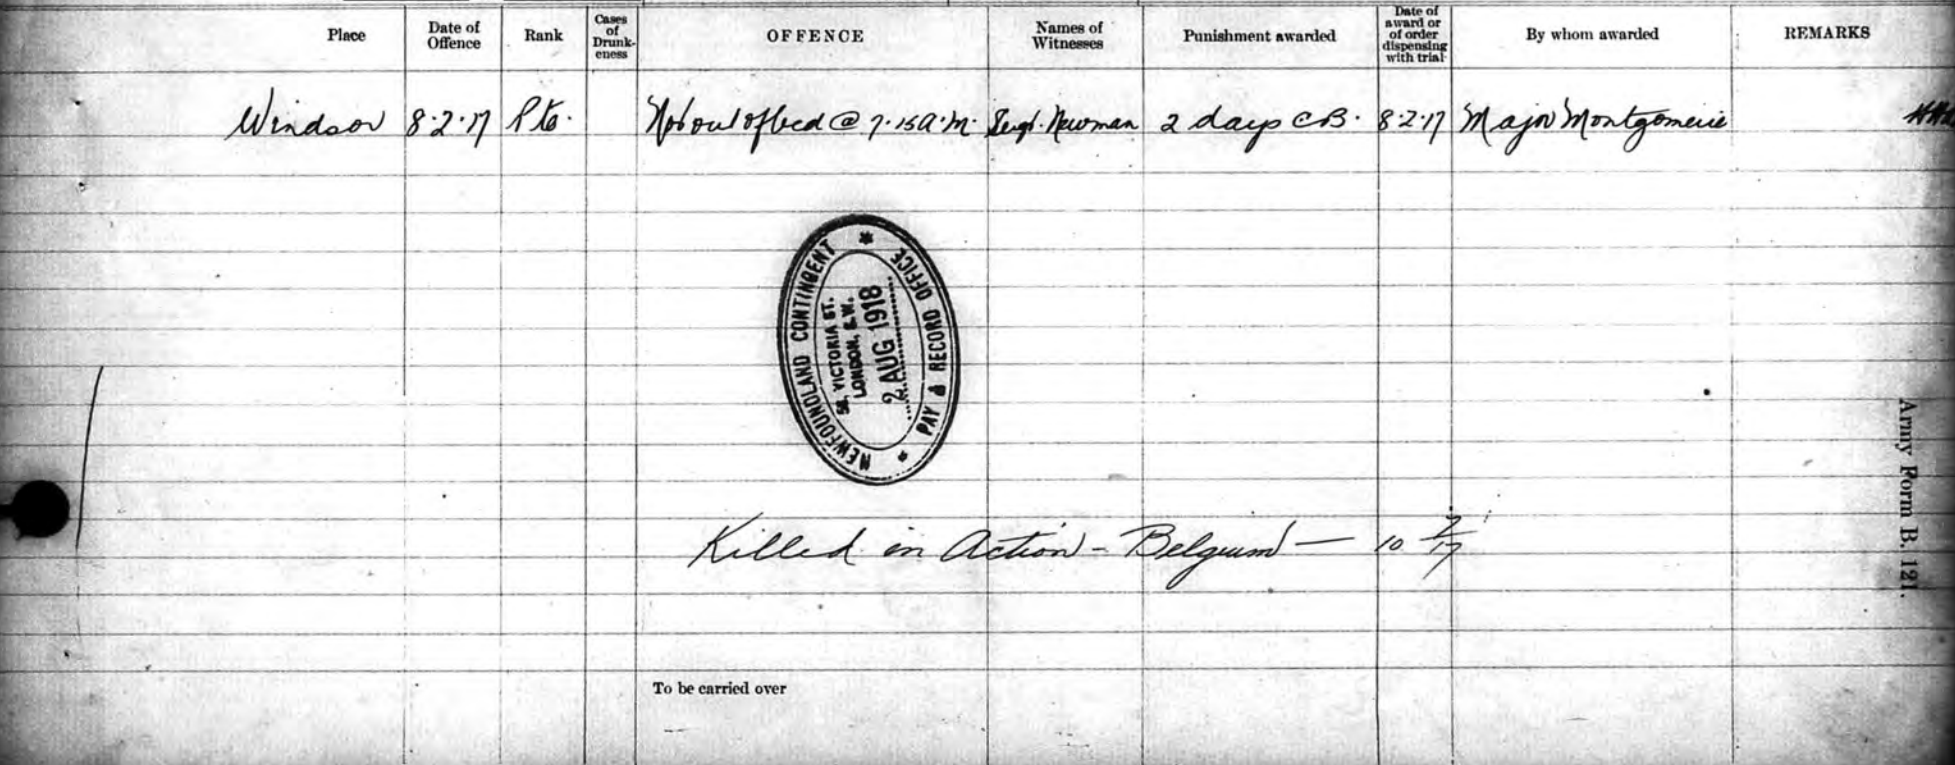 Place Date of Offence Rank Cases of Drunk-eness OFFENCE Names of Witnesses Punishment awarded Date of award or of order dispensing with trial By whom awarded REMARKS
Windsor 8.2.17 Pte. Not out of bed @ 7.15 a.m. Sergt. Newman 2 days C.B. 8.2.17 Major Montgomerie
NEWFOUNDLAND CONTINGENT
58, VICTORIA ST.
LONDON, S.W.
2 AUG 1918
PAY & RECORD OFFICE
Killed in Action - Belgium - 10 7/17
To be carried over
Army Form B. 121.